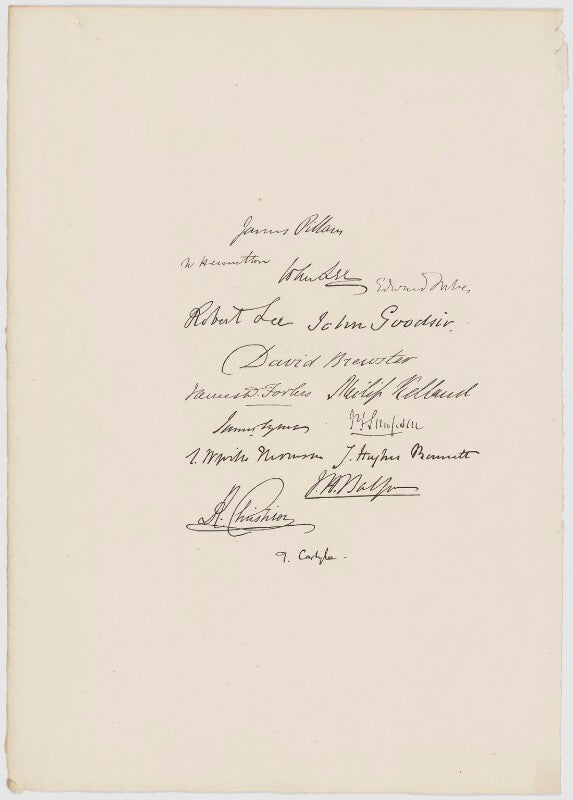 James Pillans
W Hamilton
John Lee Edward Forbes
Robert Lee John Goodsir.
David Brewster
James D. Forbes Philip Kelland
James Syme JY Simpson
T. Wyville Thomson J. Hughes Bennett
J.H. Balfour
R. Christison
T. Carlyle.